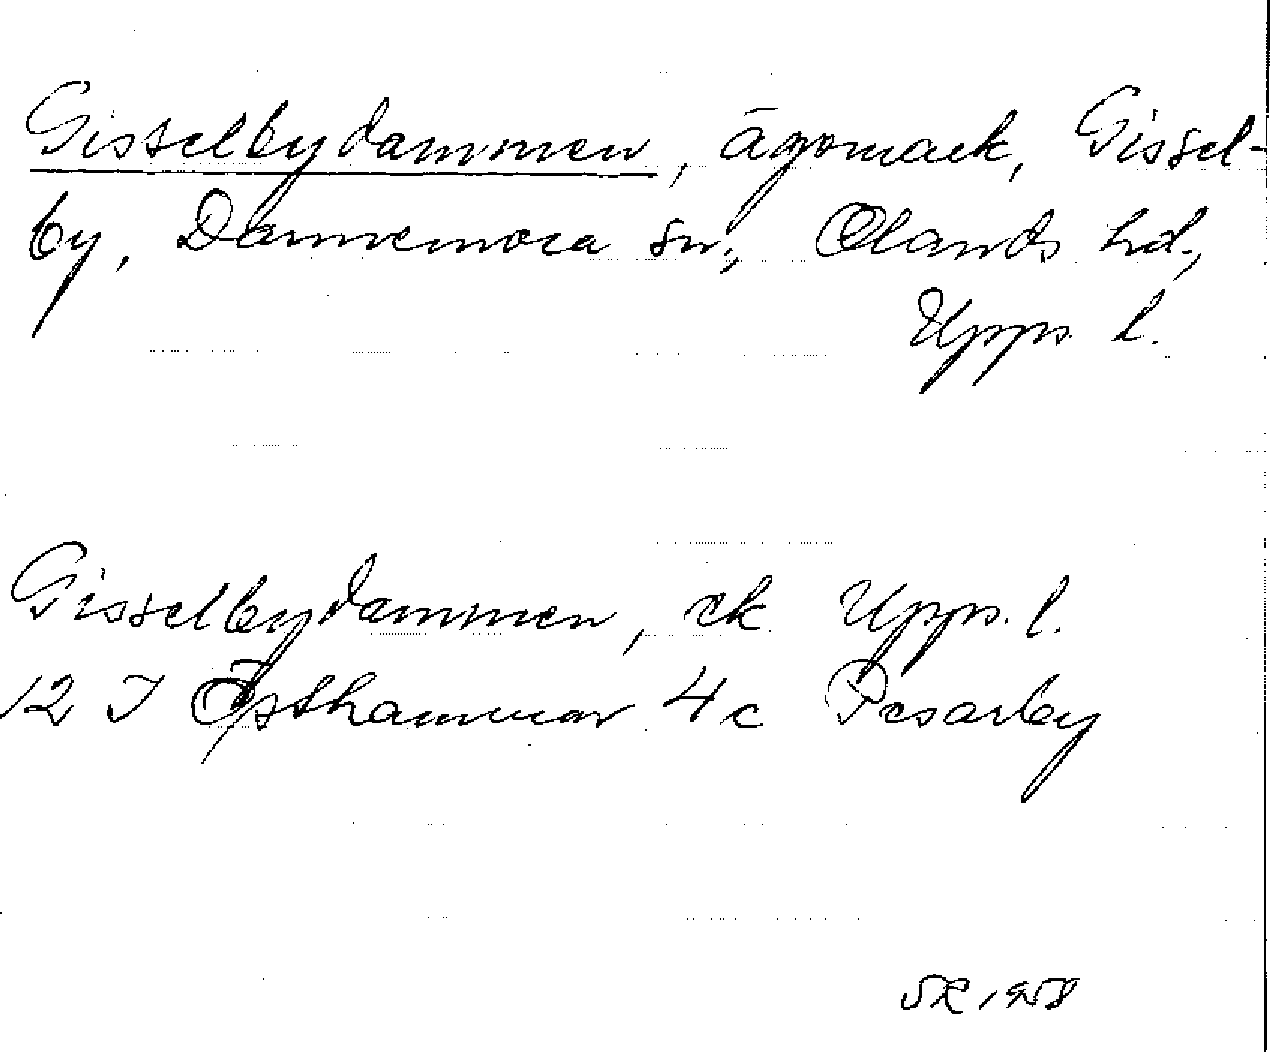 Gisselbydammen, ägomark, Gissel-
by, Dannemora sn, Olands hd,
Upps. l.
Gisselbydammen, ek. Upps. l.
12 I Östhammar 4c Pesarby
1958